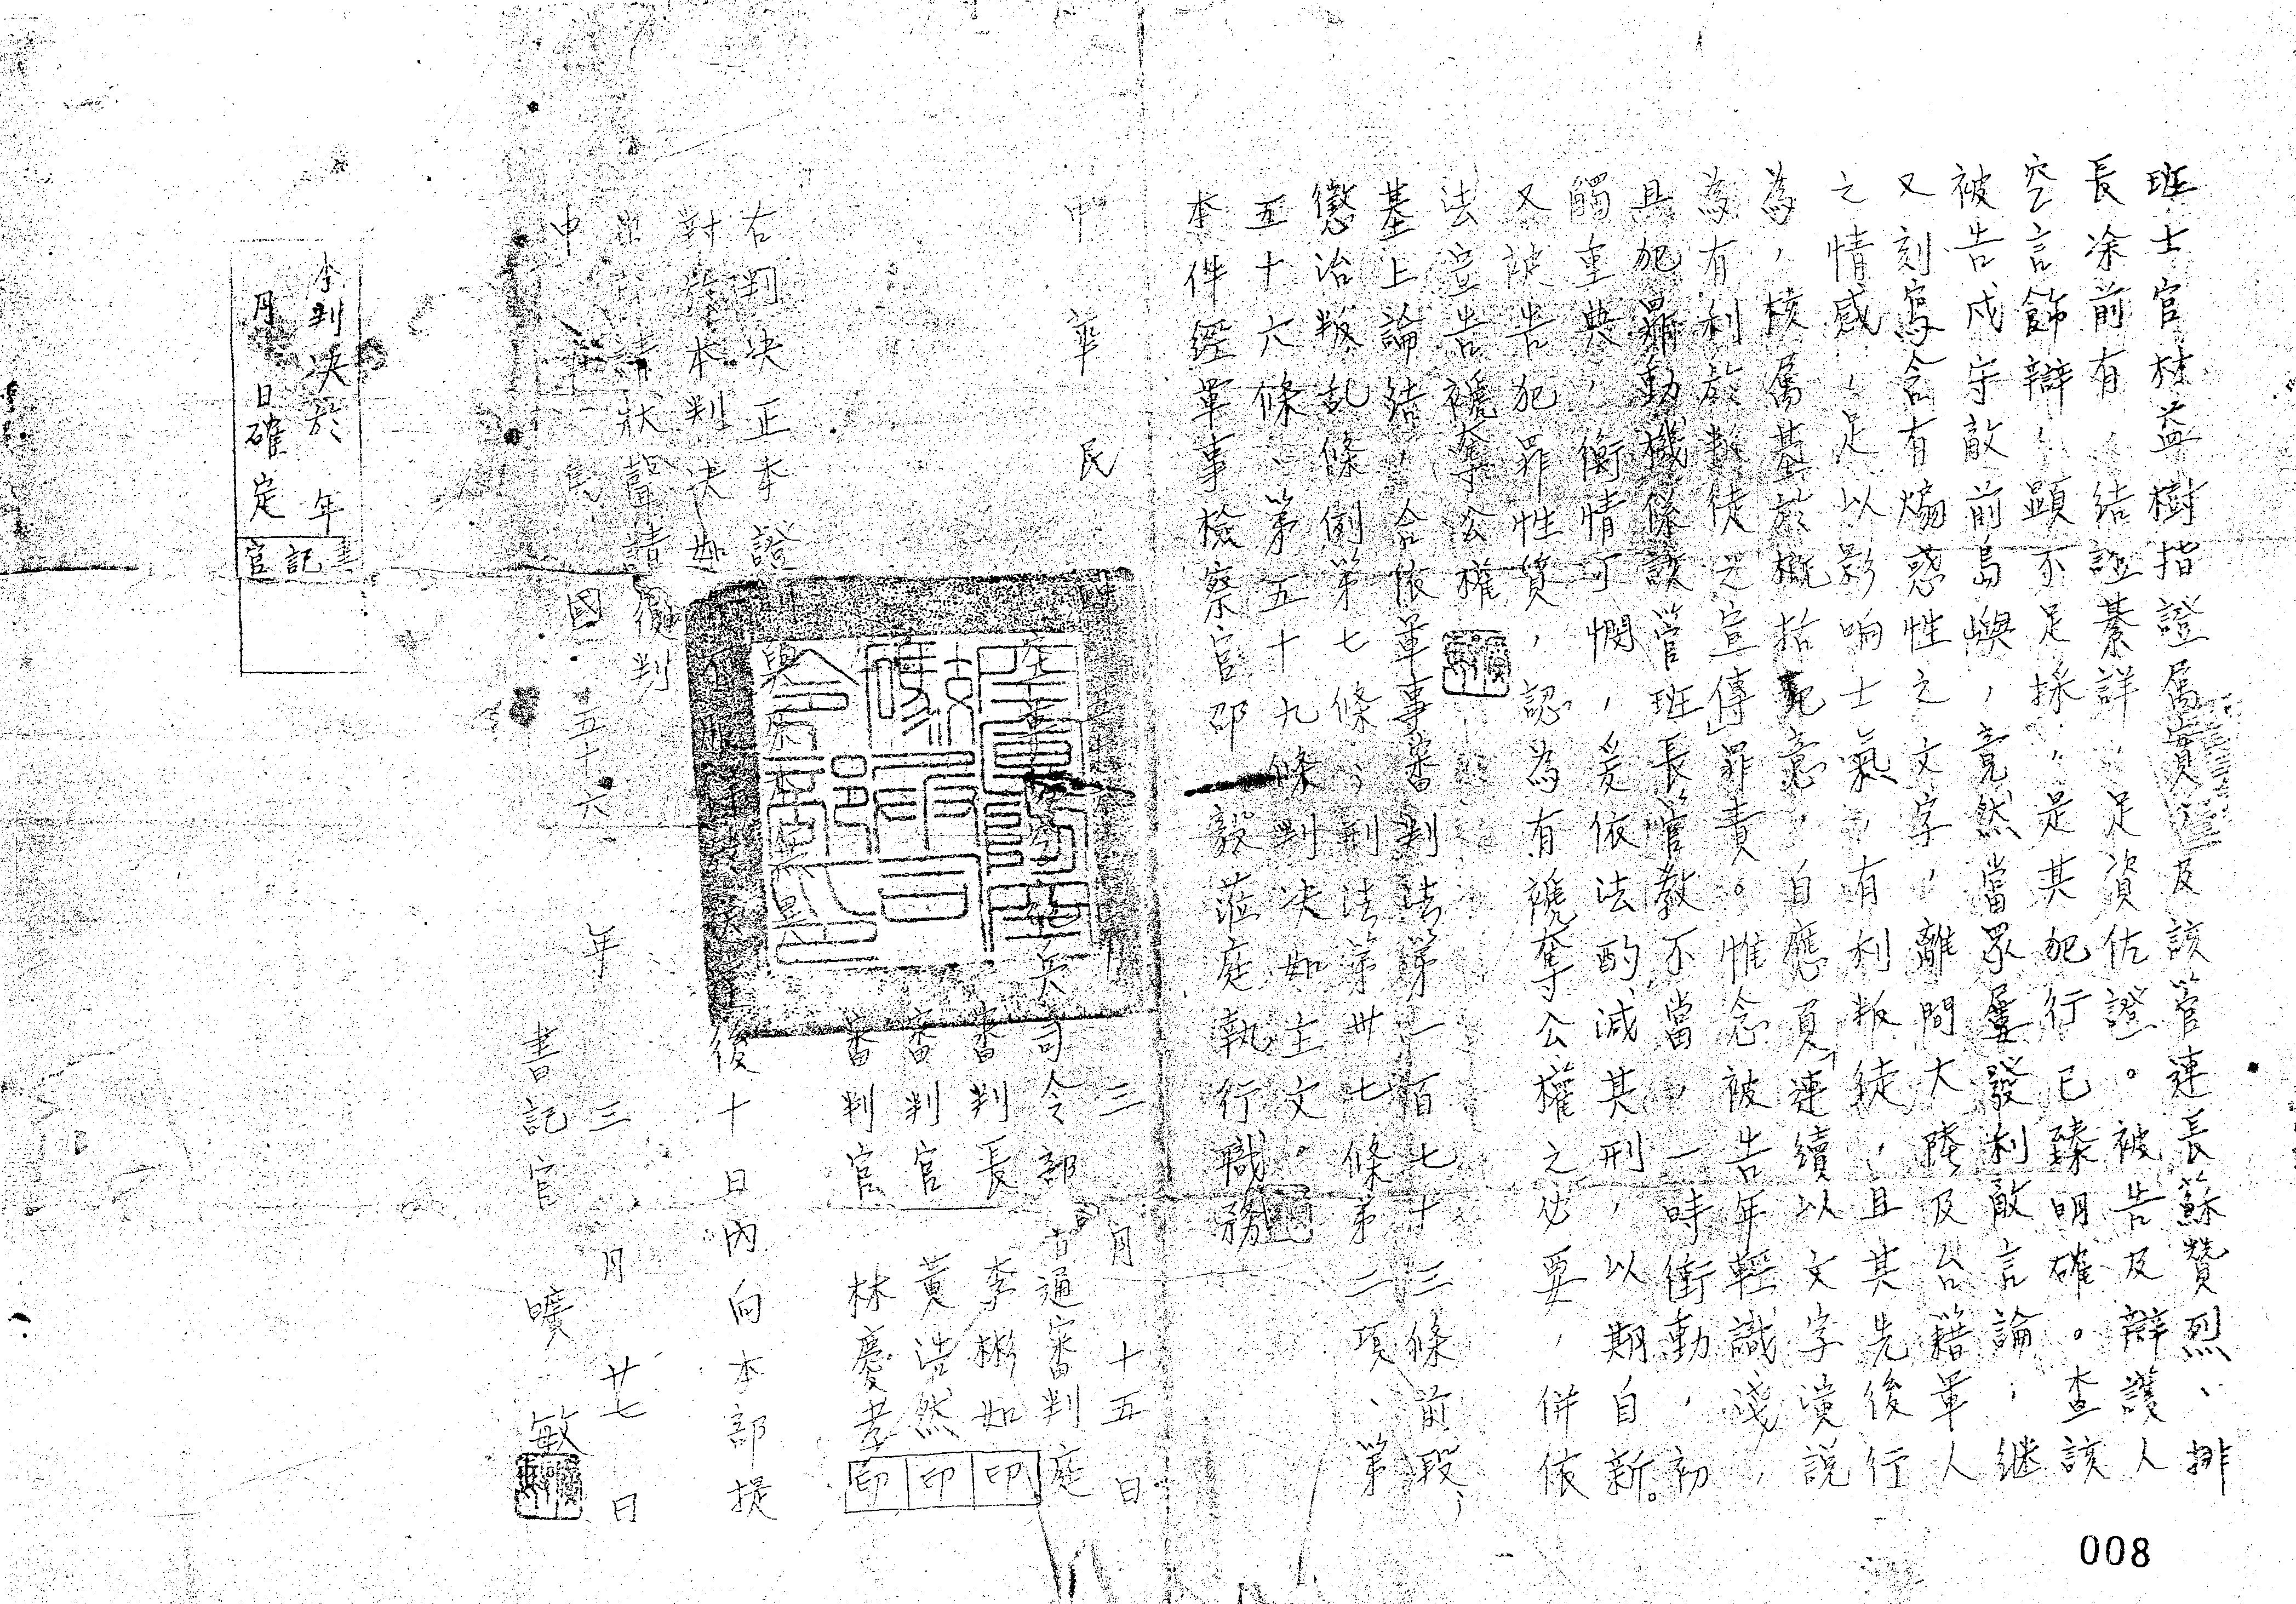 班士官林益樹指證屬實，及該管連長蘇贊烈、排
長凃前有，結證綦詳，足資佐證。被告及辯護人
空言飾辯，顯不足採，是其犯行已臻明確。查該
被告戍守敵前島嶼，竟然當眾屢發利敵言論，繼
又刻寫含有煽惑性之文字，離間大陸及台籍軍人
之情感，足以影响士氣，有利叛徒，且其先後行
為，核屬基於概括犯意，自應負「連續以文字演說
為有利於叛徒之宣傳」罪責。惟念被告年輕識淺，初
且犯罪動機係該管班長管教不當，一時衝動，
觸重典，衡情可憫，爰依法酌減其刑，以期自新。
又被告犯罪性質，認為有褫奪公權之必要，併依
法宣告褫奪公權
基上論結，合依軍事審判法第一百七十三條前段，
懲治叛乱條例第七條，刑法第卅七條第二項、第
五十六條、第五十九條判決如主文。
本件經軍事檢察官邵毅蒞庭執行職務
中華民 三月十五日
兵司令部普通審判庭
審判長 李彬如 印
審判官 黃浩然 印
審判官 林慶孝 印
右判決正本證 與原本無異
對於本判決如不服 後十日內向本部提
出 請狀聲請覆判
中 民國五十六年三月廿七日
書記官 曠敏
本判決於 年
月 日確定
書記官
008